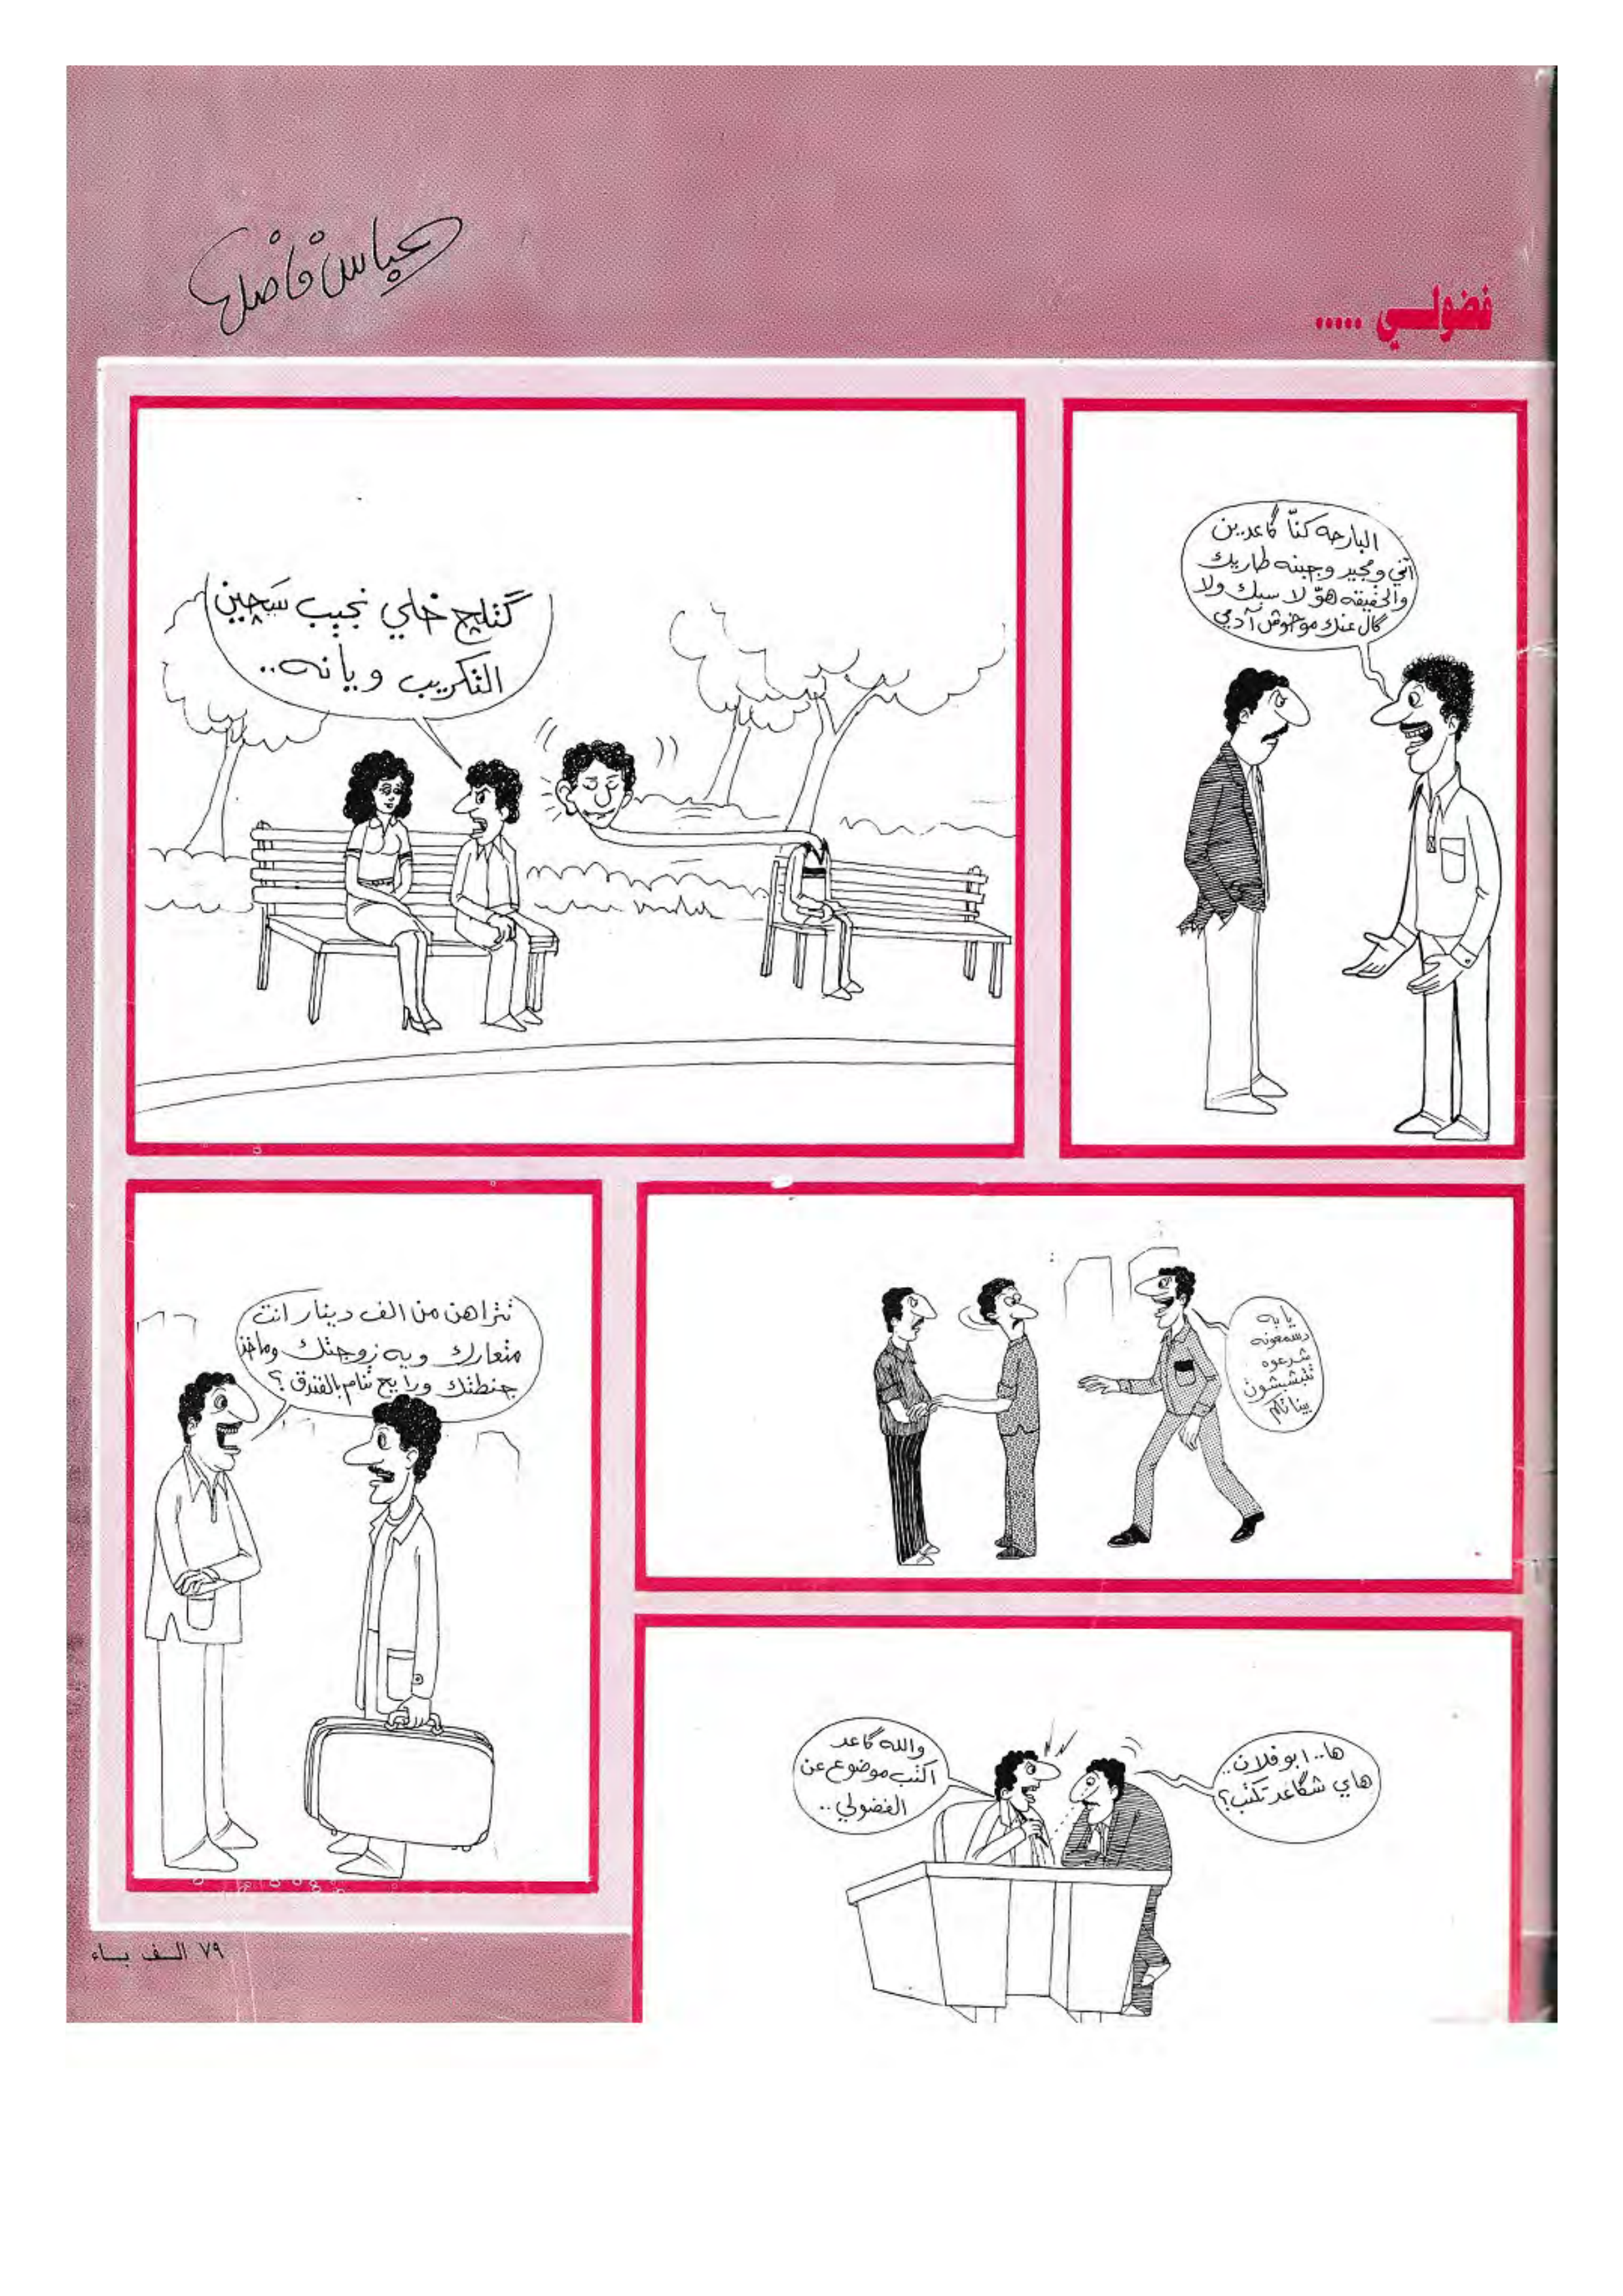 عباس فاضل
فضولي .....
البارحه كنّا گاعدين
آني ومجيد وجبنه طاريك
والحقيقه هوّ لا سبك ولا
گال عنك موخوش آدمي
گتلچ خلي نجيب سچين
التكريب ويانه..
يا به
دسمعونه
شدعوه
تتبشبشون
بيناتكم
تتراهن من الف دينار انت
متعارك ويه زوجتك وماخذ
جنطتك ورايح تنام بالفندق؟
ها.. ابو فلان..
هاي شگاعد تكتب؟
والله گاعد
اكتب موضوع عن
الفضولي..
٧٩ الف باء